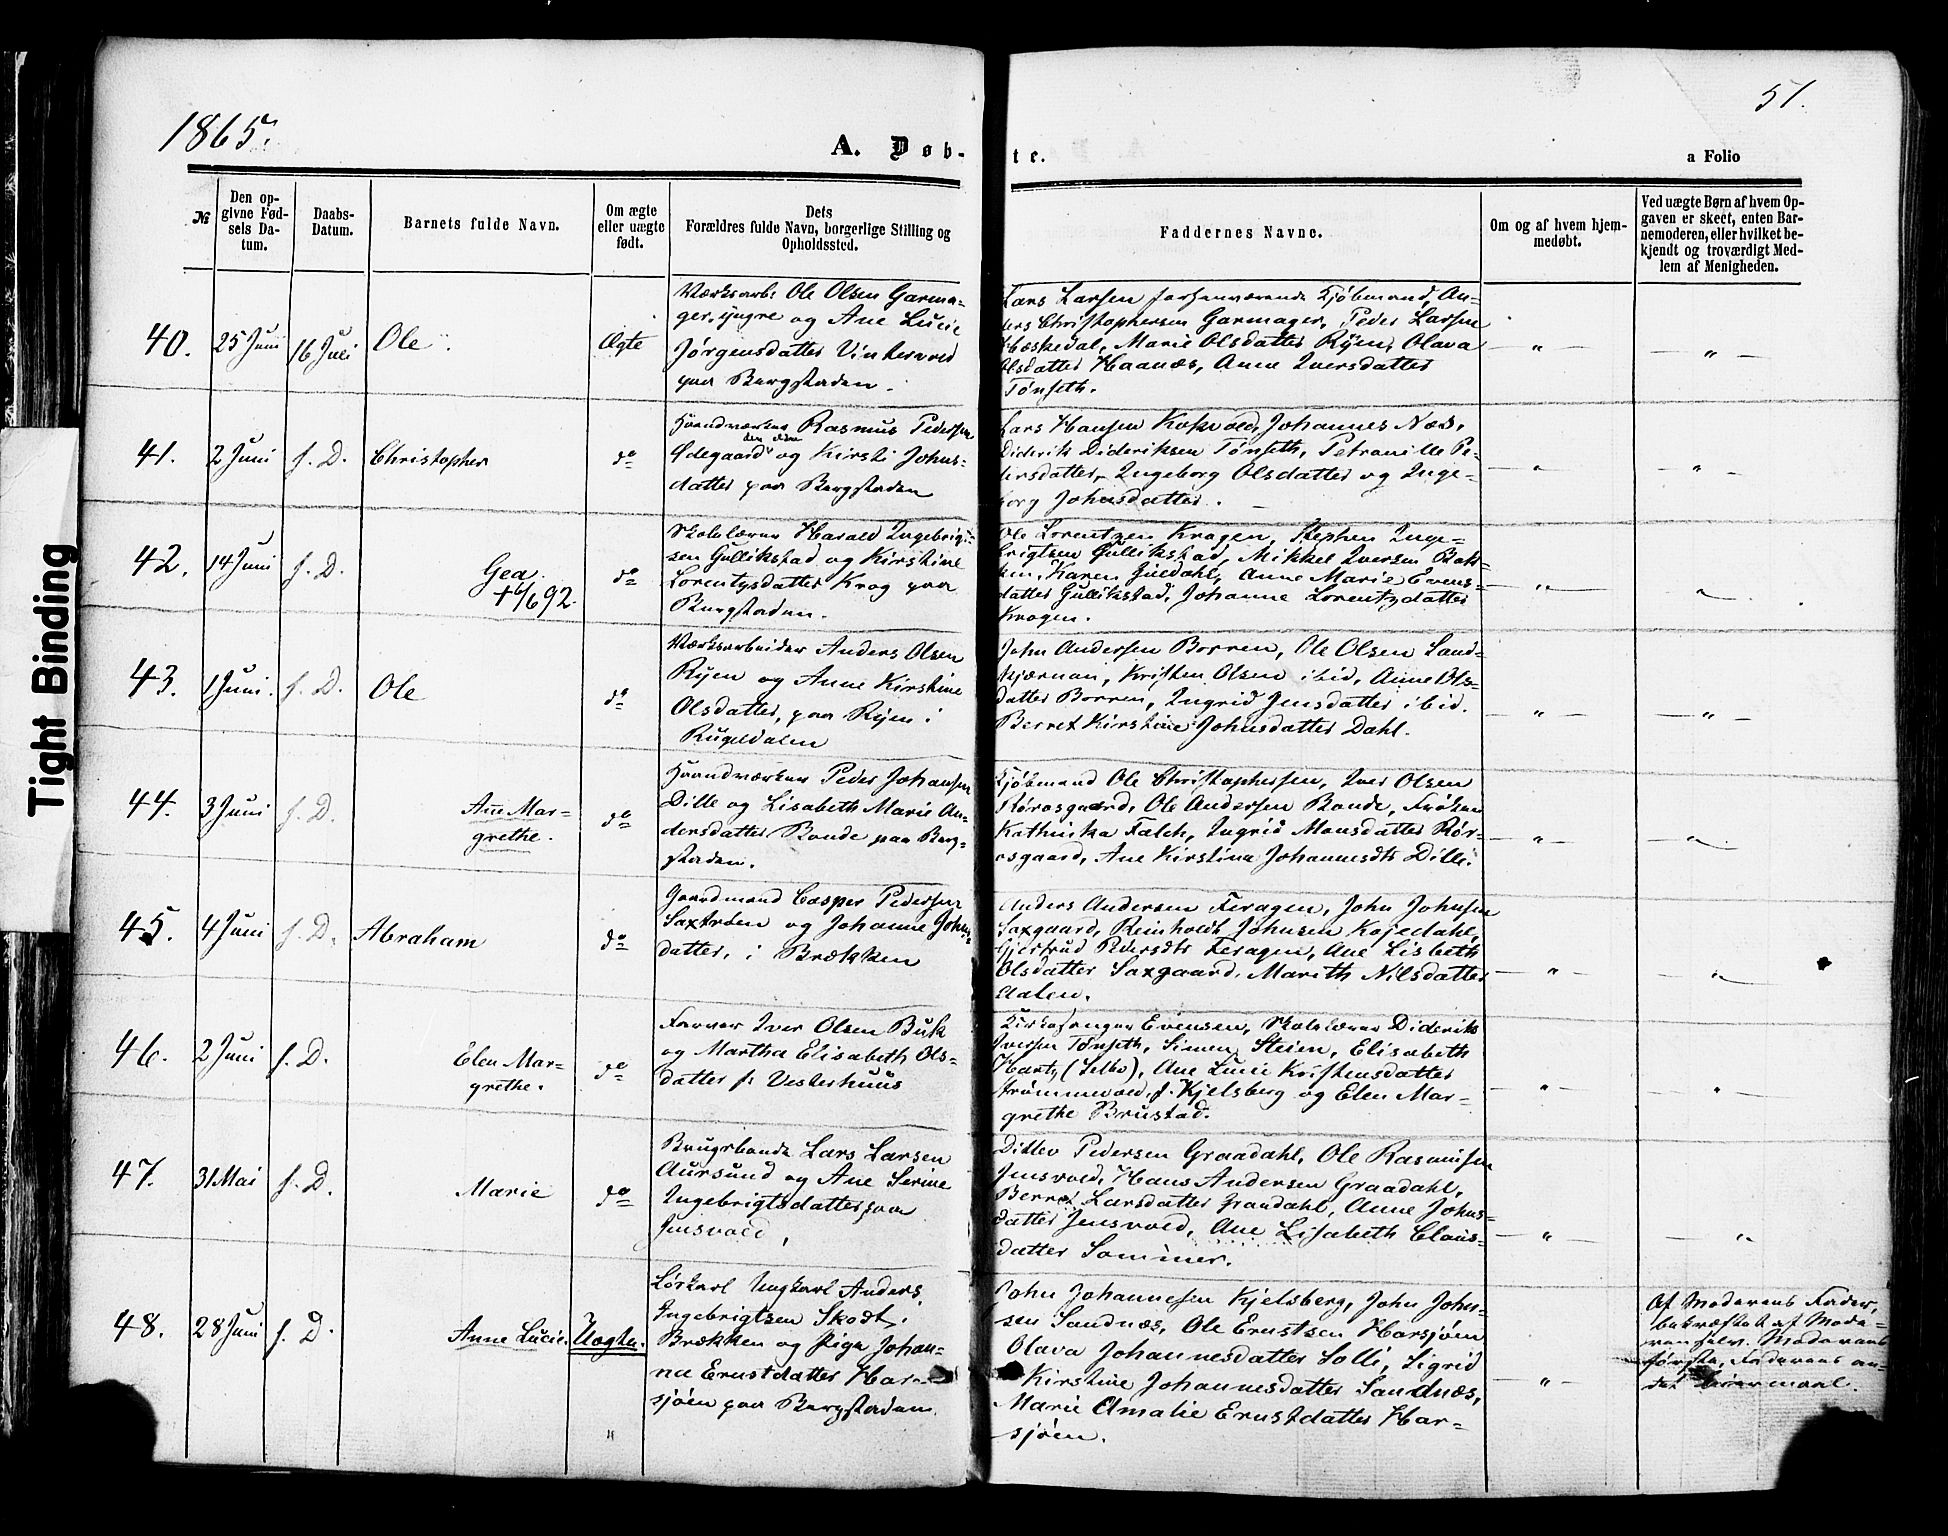 1865.
51.
A. Døb-
te.
a Folio
№
Den op-
givne Fød-
sels Da-
tum.
Daabs-
Datum.
Barnets fulde Navn.
Om ægte
eller uægte
født.
Dets
Forældres fulde Navn, borgerlige Stilling og
Opholdssted.
Faddernes Navne.
Om og af hvem hjem-
medøbt.
Ved uægte Børn af hvem Op-
gaven er skeet, enten Bar-
nemoderen, eller hvilket be-
kjendt og troværdigt Med-
lem af Menigheden.
40.
25 Juni
16 Juli
Ole
Ægte
Værksarb: Ole Olsen Garma-
ger, yngre og Ane Lucie
Jørgensdatter Vintervold
paa Bergstaden.
Lars Larsen forhenværende Kjøbmand, An-
ders Christophersen Garmager, Peder Larsen
Hæskedal, Marie Olsdatter Ryen, Olava
Olsdatter Haanæs, Anne Iversdatter
Tønseth.
" "
41.
2 Juni
s. D.
Christopher
do
Haandværker Rasmus Pedersen
den eldre
Ødegaard og Kirsti Johns-
datter paa Bergstaden
Lars Hansen Kokvold, Johannes Næs,
Diderik Dideriksen Tønseth, Petronille Pe-
dersdatter, Ingeborg Olsdatter og Inge-
borg Johnsdatter.
" "
42.
14 Juni
s. D.
Gea
+ 6/6 92.
do
Skolelærer Harald Ingebrigt-
sen Gullikstad og Kirstine
Lorentzdatter Krog paa
Bergstaden.
Ole Lorentzen Krogen, Stephen Inge-
brigtsen Gullikstad, Mikkel Iversen Bak-
ken, Karen Guldahl, Anne Marie Evens-
datter Gullikstad, Johanne Lorentzdatter
Krogen.
" "
43.
1 Juni
s. D.
Ole
do
Værksarbeider Anders Olsen
Ryen og Anne Kirstine
Olsdatter, paa Ryen i
Rugeldalen
John Andersen Borren, Ole Olsen Land-
kjærnan, Kristen Olsen ibid, Anne Ols-
datter Borren, Ingrid Jensdatter ibid.
Berret Kirstine Johnsdatter Dahl.
" "
44.
3 Juni
s. D.
Ane Mar-
grethe.
do
Haandværker Peder Johansen
Dille og Lisabeth Marie An-
dersdatter Bonde paa Berg-
staden.
Kjøbmand Ole Christophersen, Iver Olsen
Rørosgaard, Ole Andersen Bonde, Frøken
Kathinka Falch, Ingrid Monsdatter Rør-
osgaard, Ane Kirstina Johannesdtr Dille.
" "
45.
4 Juni
s. D.
Abraham
do
Gaardmand Casper Pedersen
Saxtrøen og Johanne Johns-
datter, i Brækken
Anders Andersen Feragen, John Johnsen
Saxgaard, Reinholdt Johnsen Kojedahl,
Gjertrud Pedersdtr Feragen, Ane Lisbeth
Olsdatter Saxgaard, Marith Nilsdatter
Dalen.
" "
46.
2 Juni
s. D.
Elen Mar-
grethe.
do
Farver Iver Olsen Buk
og Martha Elisabeth Ols-
datter f: Vesterhuus
Kirkesanger Evensen, Skolelærer Diderik
Iversen Tønseth, Simen Steien, Elisabeth
Hartz (Selbo), Ane Lucie Kristensdatter
Strømmevold, f. Kjelsberg og Elen Mar-
grethe Brustad.
" "
47.
31 Mai
s. D.
Marie
do
Brugsbonde Lars Larsen
Aursund og Ane Serine
Ingebrigtsdatter paa
Jensvold,
Ditlev Pedersen Graadahl, Ole Rasmusen
Jensvold, Hans Andersen Graadahl,
Berret Larsdatter Graadahl, Anne Johns-
datter Jensvold, Ane Lisabeth Claus-
datter Sommer.
" "
48.
28 Juni
s. D.
Anne Lucie.
Uægte.
Løskarl Ungkarl Anders
Ingebrigtsen Skodt,
Brækken og Pige Johan-
na Ernstdatter Har-
sjøen paa Bergstaden.
John Johannesen Kjelsberg, John John-
sen Sandnæs, Ole Ernstsen Harsjøen
Olava Johannesdatter Solli, Sigrid
Kirstine Johannesdatter Sandnæs,
Marie Amalie Ernstdatter Har-
sjøen.
"
Af Moderens Fader,
bekræftet af Mode-
ren selv. Moderens
første, Faderens an-
det Leiermaal.
Tight Binding